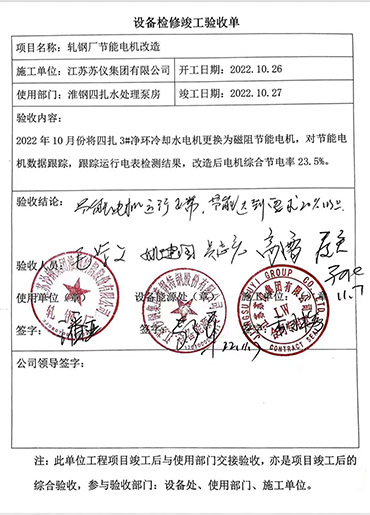 设备检修竣工验收单
项目名称：轧钢厂节能电机改造
施工单位：江苏苏仪集团有限公司 开工日期：2022.10.26
使用部门：淮钢四扎水处理泵房 竣工日期：2022.10.27
验收内容：
2022 年 10 月份将四扎 3#净环冷却水电机更换为磁阻节能电机，对节能电
机数据跟踪，跟踪运行电表检测结果，改造后电机综合节电率 23.5%。
验收结论：节能电机运行正常，节能达到要求20%以上
验收人员：
使用单位（章） 设备能源处（章） 施工单位（章）
11.7
签字： 签字：
JIANGSU SUYI GROUP CO., LTD
CONTRACT SEAL
公司领导签字：
注：此单位工程项目竣工后与使用部门交接验收，亦是项目竣工后的
综合验收，参与验收部门：设备处、使用部门、施工单位。